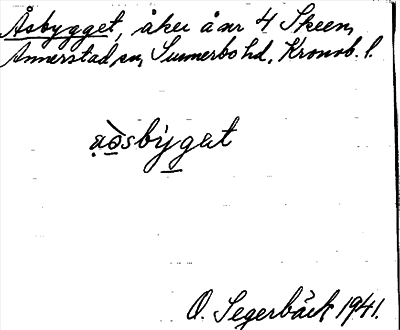 Åsbygget, åker å nr 4 Skeen,
Annerstad sn, Sunnerbo hd, Kronob. l.
a̤o̠̒sby̠get
O. Segerbäck 1941.